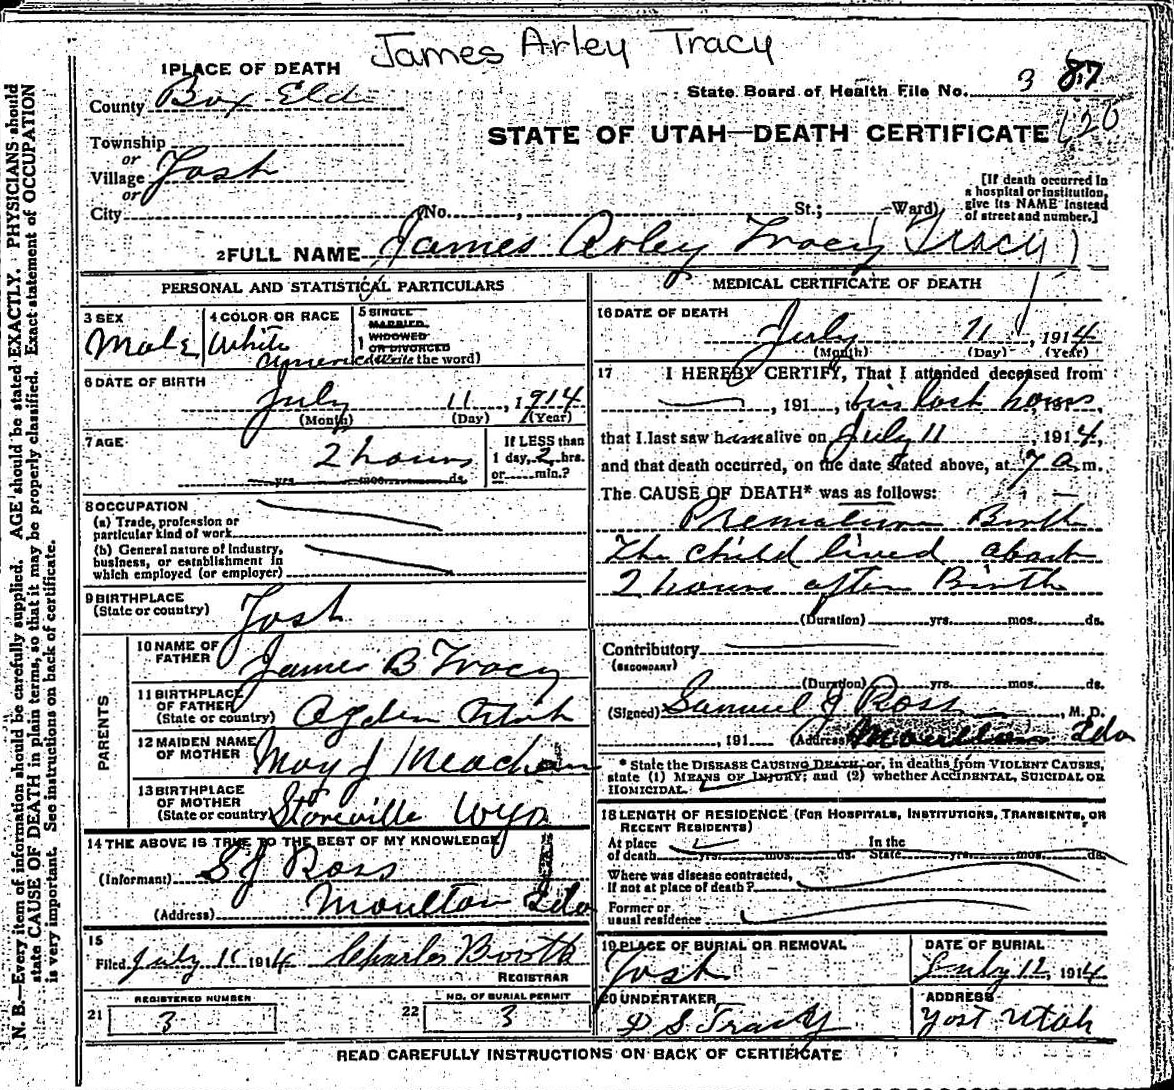 James Arley Tracy
1 PLACE OF DEATH
County Box Elder
State Board of Health File No. 3 87
120
STATE OF UTAH—DEATH CERTIFICATE
Township
or
Village Yost
or
City (No. , St.; Ward)
[If death occurred in
a hospital or institution,
give its NAME instead
of street and number.]
2 FULL NAME James Arley Tracy (Tracy)
PERSONAL AND STATISTICAL PARTICULARS
3 SEX
Male
4 COLOR OR RACE
White
American
5 SINGLE
MARRIED
WIDOWED
OR DIVORCED
(Write the word)
6 DATE OF BIRTH
July 11, 1914
(Month) (Day) (Year)
7 AGE
2 hours
yrs. mos. ds.
If LESS than
1 day, 2 hrs.
or min.?
8 OCCUPATION
(a) Trade, profession or
particular kind of work
(b) General nature of industry,
business, or establishment in
which employed (or employer)
9 BIRTHPLACE
(State or country) Yost
PARENTS
10 NAME OF
FATHER James B Tracy
11 BIRTHPLACE
OF FATHER
(State or country) Ogden Utah
12 MAIDEN NAME
OF MOTHER May J Meacham
13 BIRTHPLACE
OF MOTHER
(State or country) Storeville Wyo
14 THE ABOVE IS TRUE TO THE BEST OF MY KNOWLEDGE
(Informant) S J Ross
(Address) Moulton Ida
15
Filed July 11 1914 Charles Booth
REGISTRAR
REGISTERED NUMBER
21 3
NO. OF BURIAL PERMIT
22 3
MEDICAL CERTIFICATE OF DEATH
16 DATE OF DEATH
July 11, 1914
(Month) (Day) (Year)
17 I HEREBY CERTIFY, That I attended deceased from
, 191 , to his last hours, 191 ,
that I last saw him alive on July 11, 1914,
and that death occurred, on the date stated above, at 7 a. m.
The CAUSE OF DEATH* was as follows:
Premature Birth
The child lived about
2 hours after Birth
(Duration) yrs. mos. ds.
Contributory
(SECONDARY)
(Duration) yrs. mos. ds.
(Signed) Samuel J Ross, M. D.
, 191 (Address) Moulton Ida
* State the DISEASE CAUSING DEATH, or, in deaths from VIOLENT CAUSES,
state (1) MEANS OF INJURY; and (2) whether ACCIDENTAL, SUICIDAL OR
HOMICIDAL.
18 LENGTH OF RESIDENCE (FOR HOSPITALS, INSTITUTIONS, TRANSIENTS, OR
RECENT RESIDENTS)
At place In the
of death yrs. mos. ds. State yrs. mos. ds.
Where was disease contracted,
if not at place of death?
Former or
usual residence
19 PLACE OF BURIAL OR REMOVAL
Yost
DATE OF BURIAL
July 12 1914
20 UNDERTAKER
D S Tracy
ADDRESS
Yost Utah
READ CAREFULLY INSTRUCTIONS ON BACK OF CERTIFICATE
N. B.—Every item of information should be carefully supplied. AGE should be stated EXACTLY. PHYSICIANS should
state CAUSE OF DEATH in plain terms, so that it may be properly classified. Exact statement of OCCUPATION
is very important. See instructions on back of certificate.